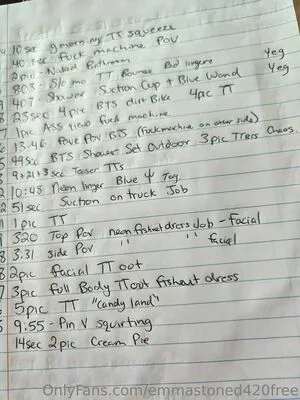 10 sec g morning TT squeeze
40 sec Fuck machine POV
2 pic - Naked Bathroom
8:03 - Slo mo TT Bounce Red lingere
407 Shower Suction Cup + Blue Wand yeg
23 sec 4 pic BTS Dirt Bike 4 pic TT yeg
1 pic ASS view fuck machine
13:46 Pove POV BTS (Fuckmachine on other side)
49 sec BTS Shower Set Outdoor 3 pic TTers Chaos
9+21+3 sec Teaser TTs
10:48 Neon linger Blue Toy
51 sec Suction on truck Job
1 pic TT
320 Top Pov neon fishnet dress Job - Facial
3:31 side Pov " " facial
2 pic facial TT oot
3 pic full Body TT out fishnet dress
5 pic TT "candy land"
9:55 - Pin V squirting
14 sec 2 pic Cream Pie
OnlyFans.com/emmastoned420free